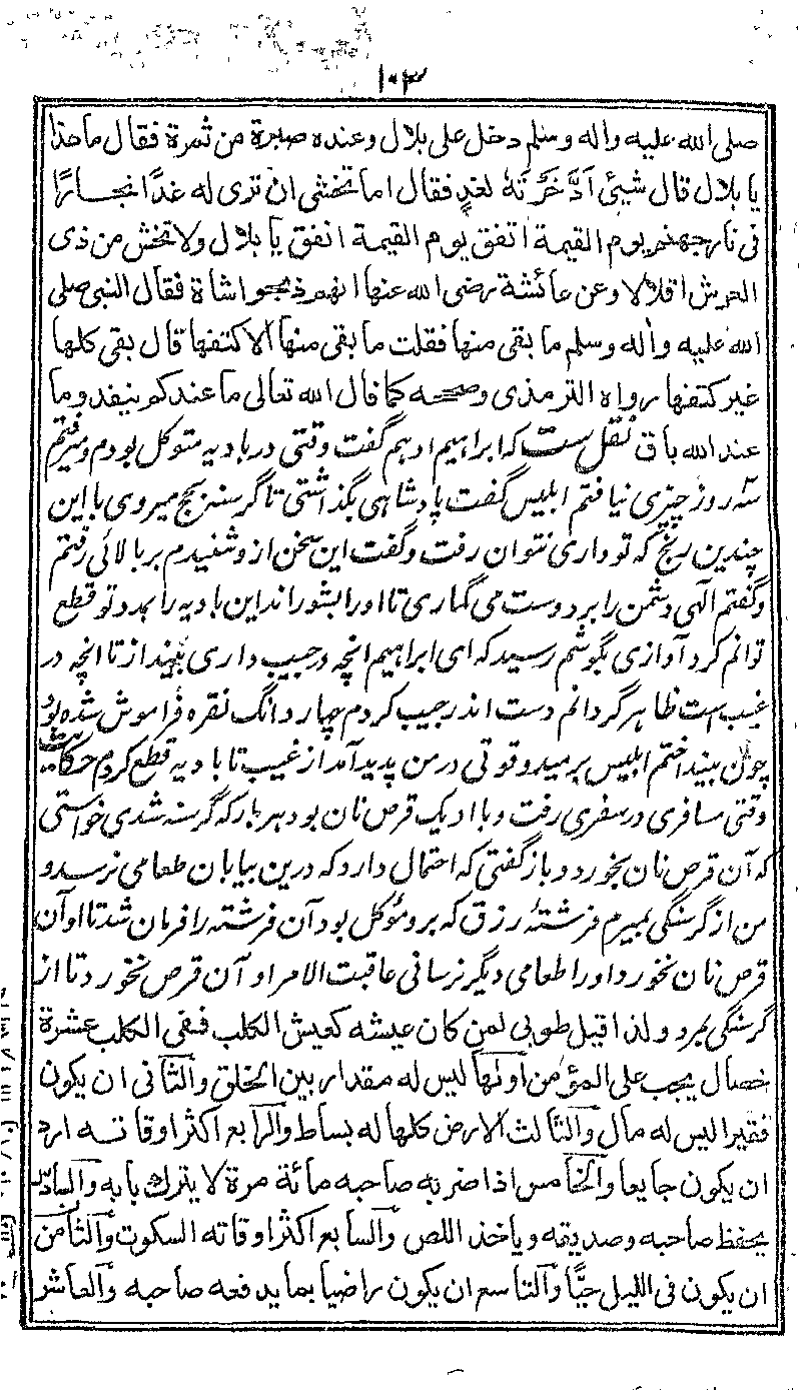 ۱۰۳
صلی الله علیه واله وسلم دخل علی بلال وعنده صبرة من ثمرة فقال ماهذا
یا بلال قال شیئ ادخرته لغد فقال اما تخشی ان تری له غدا بخارًا
فی نار جهنم یوم القیمة اتفق یوم القیمة انفق یا بلال ولا تخش من ذی
العرش اقلالا وعن عائشة رضی الله عنها انهم ذبحوا شاة فقال النبی صلی
الله علیه واله وسلم ما بقی منها فقلت ما بقی منها الا کتفها قال بقی کلها
غیر کتفها رواه الترمذی وصححه کما قال الله تعالی ما عندکم ینفد وما
عند الله باق نقل ست که ابراهیم ادهم گفت وقتی در بادیه متوکل بودم ومیرفتم
سه روز چیزی نیافتم ابلیس گفت پادشاهی بگذاشتی تا گرسنه بحج میروی با این
چندین رنج که تو داری نتوان رفت وگفت این سخن ازو شنیدم بر بالائی رفتم
وگفتم الهی دشمن را بر دوست می گماری تا اورا بشوراند این بادیه را بمدد تو قطع
توانم کرد آوازی بگوشم رسید که ای ابراهیم انچه در جیب داری بینداز تا انچه در
غیب ست ظاهر گردانم دست اندر جیب کردم چهار دانگ نقره فراموش شده بود
چون بینداختم ابلیس برمید و قوتی در من پدید آمد از غیب تا بادیه قطع کردم حکایت
وقتی مسافری در سفری رفت وبا او یک قرص نان بود هر بار که گرسنه شدی خواستی
که آن قرص نان بخورد و باز گفتی که احتمال دارد که درین بیابان طعامی نرسد و
من از گرسنگی بمیرم فرشتهٔ رزق که برو مؤکل بود آن فرشته را فرمان شد تا او آن
قرص نان نخورد اورا طعامی دیگر نرسانی عاقبت الامر او آن قرص نخورد تا از
گرسنگی بمرد ولذا قیل طوبی لمن کان عیشه کعیش الکلب ففی الکلب عشرة
خصال یجب علی المؤمن اولها لیس له مقدار بین الخلق والثانی ان یکون
فقیرا لیس له مال والثالث الارض کلها له بساط والرابع اکثر اوقاته
ان یکون جایعا والخامس اذا ضربه صاحبه مائة مرة لا یترک بابه والسادس
یحفظ صاحبه وصدیقه ویاخذ اللص والسابع اکثر اوقاته السکوت والثامن
ان یکون فی اللیل حیًّا والتاسع ان یکون راضیا بما یدفعه صاحبه والعاشر